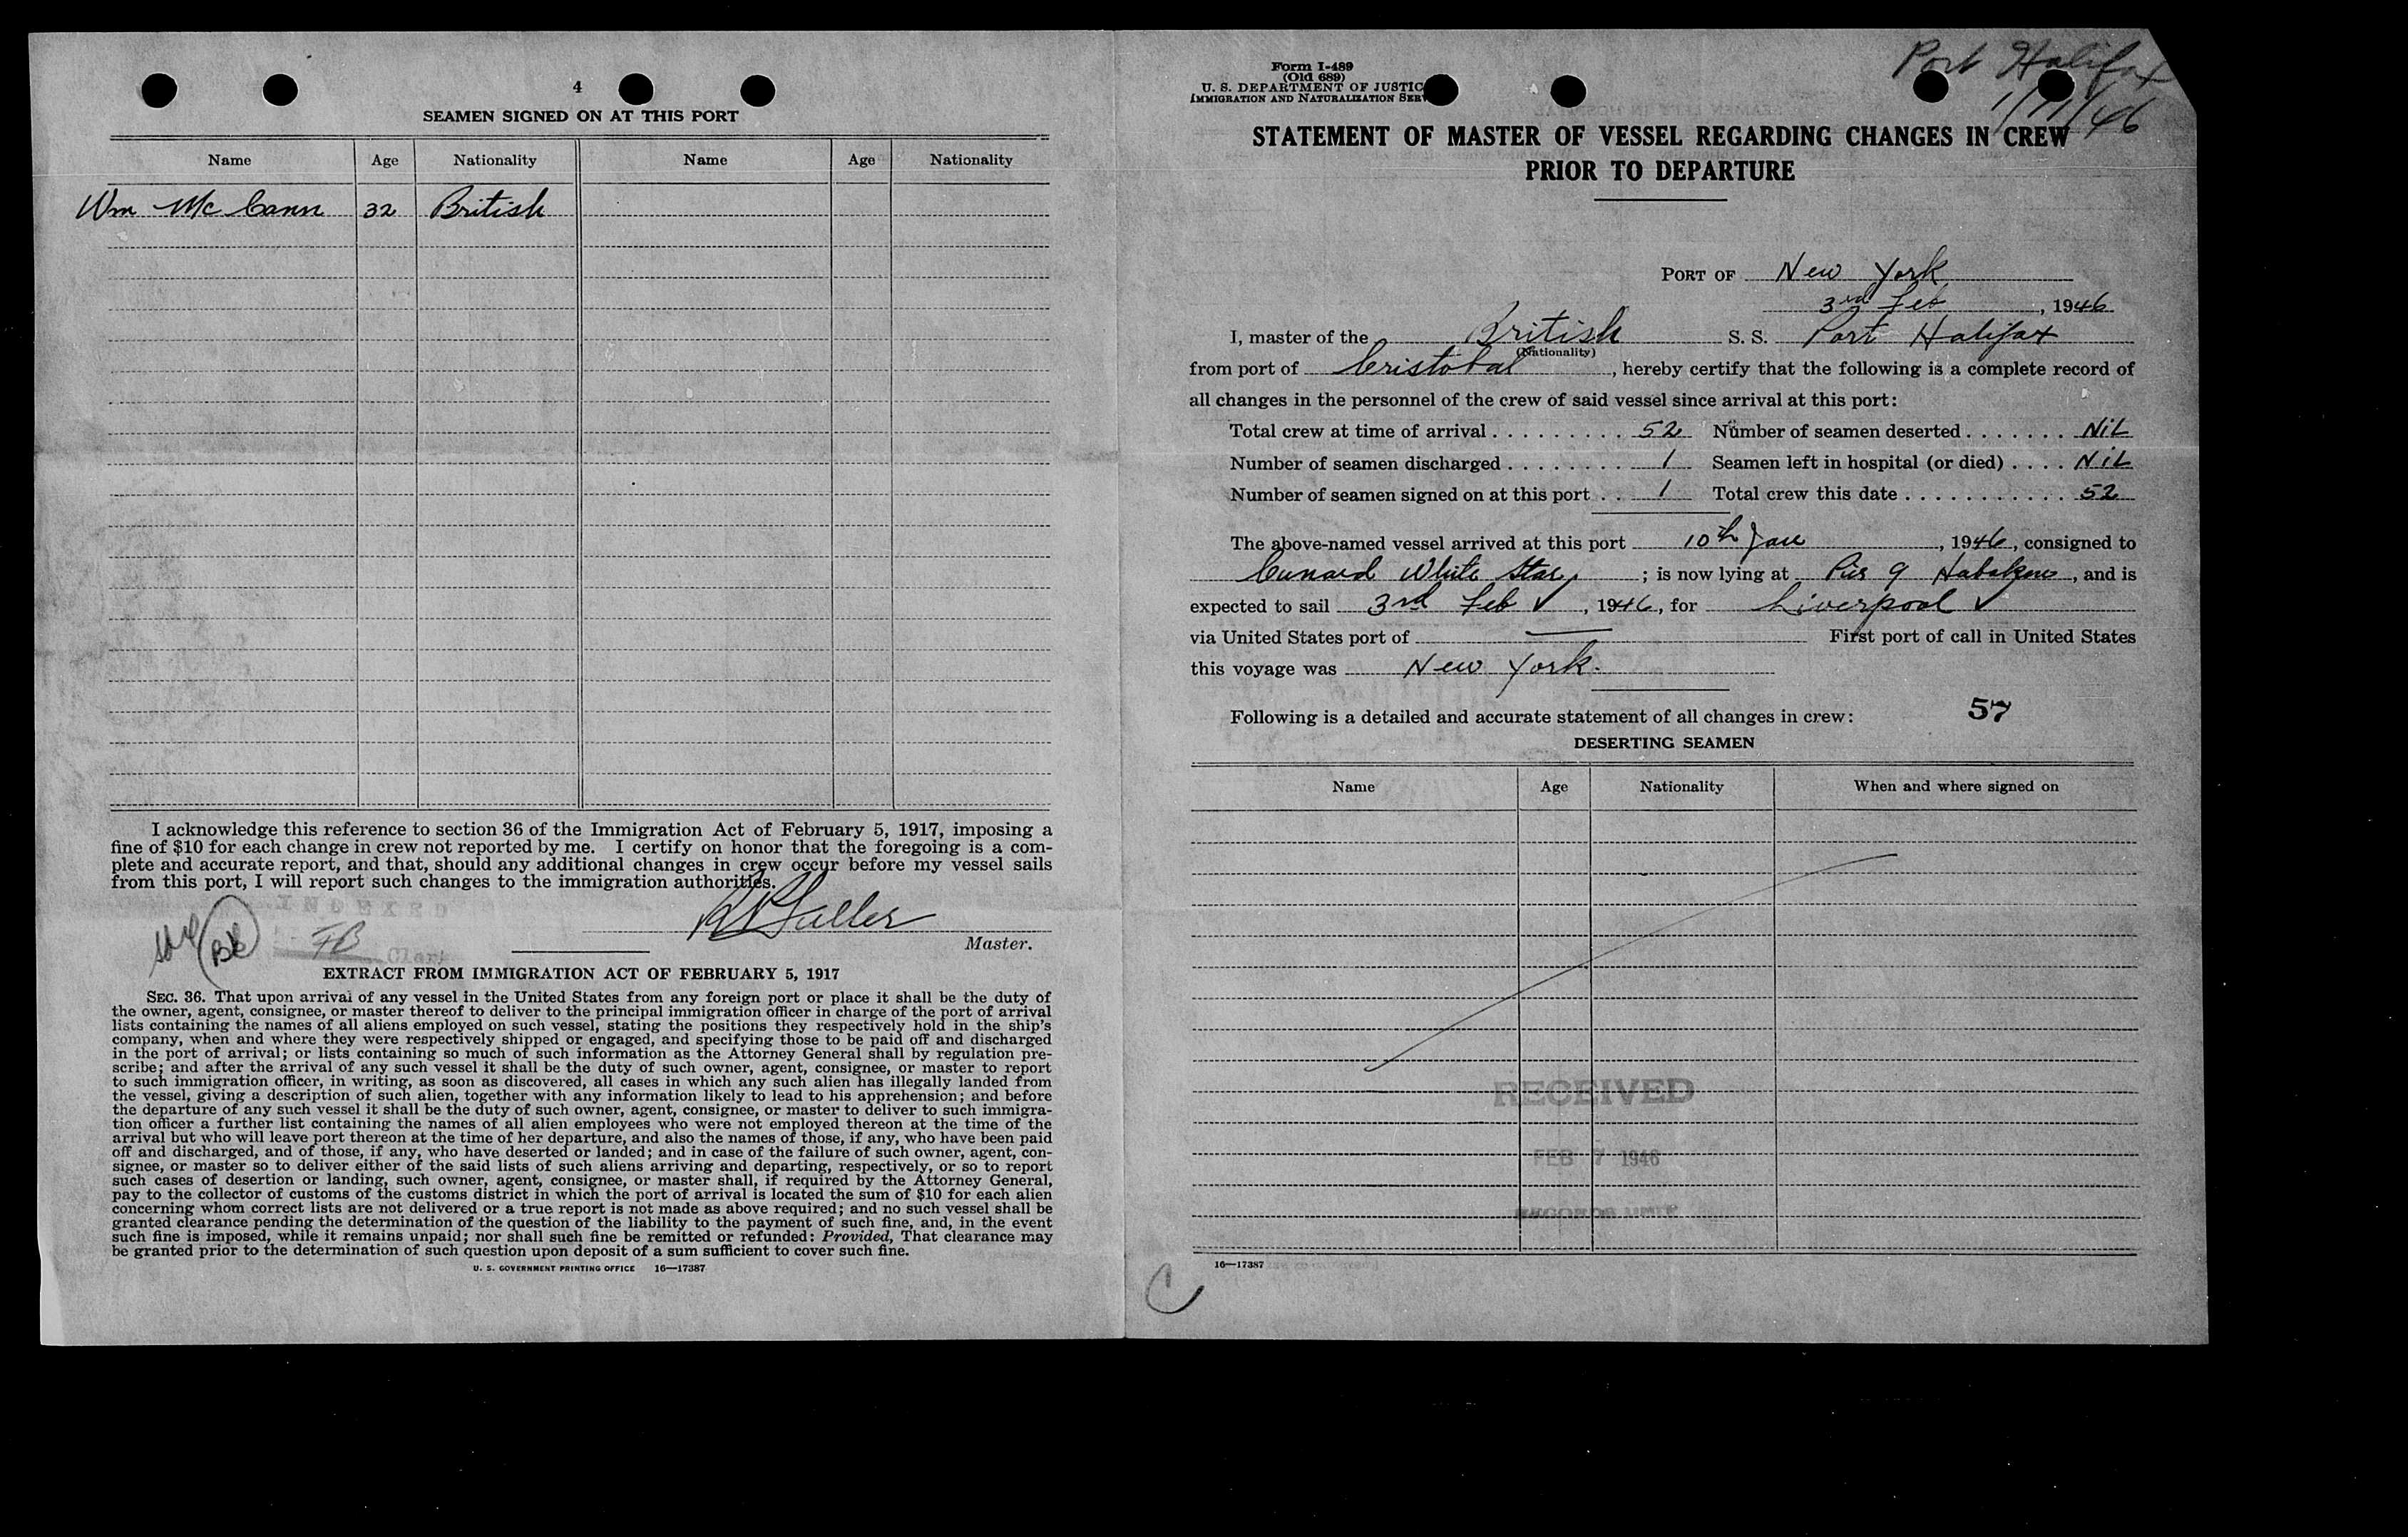 4
SEAMEN SIGNED ON AT THIS PORT
Name Age Nationality Name Age Nationality
Wm McCann 32 British
I acknowledge this reference to section 36 of the Immigration Act of February 5, 1917, imposing a
fine of $10 for each change in crew not reported by me. I certify on honor that the foregoing is a com-
plete and accurate report, and that, should any additional changes in crew occur before my vessel sails
from this port, I will report such changes to the immigration authorities.
INDEXED
FB Clerk
Master.
EXTRACT FROM IMMIGRATION ACT OF FEBRUARY 5, 1917
SEC. 36. That upon arrival of any vessel in the United States from any foreign port or place it shall be the duty of
the owner, agent, consignee, or master thereof to deliver to the principal immigration officer in charge of the port of arrival
lists containing the names of all aliens employed on such vessel, stating the positions they respectively hold in the ship's
company, when and where they were respectively shipped or engaged, and specifying those to be paid off and discharged
in the port of arrival; or lists containing so much of such information as the Attorney General shall by regulation pre-
scribe; and after the arrival of any such vessel it shall be the duty of such owner, agent, consignee, or master to report
to such immigration officer, in writing, as soon as discovered, all cases in which any such alien has illegally landed from
the vessel, giving a description of such alien, together with any information likely to lead to his apprehension; and before
the departure of any such vessel it shall be the duty of such owner, agent, consignee, or master to deliver to such immigra-
tion officer a further list containing the names of all alien employees who were not employed thereon at the time of the
arrival but who will leave port thereon at the time of her departure, and also the names of those, if any, who have been paid
off and discharged, and of those, if any, who have deserted or landed; and in case of the failure of such owner, agent, con-
signee, or master so to deliver either of the said lists of such aliens arriving and departing, respectively, or so to report
such cases of desertion or landing, such owner, agent, consignee, or master shall, if required by the Attorney General,
pay to the collector of customs of the customs district in which the port of arrival is located the sum of $10 for each alien
concerning whom correct lists are not delivered or a true report is not made as above required; and no such vessel shall be
granted clearance pending the determination of the question of the liability to the payment of such fine, and, in the event
such fine is imposed, while it remains unpaid; nor shall such fine be remitted or refunded: Provided, That clearance may
be granted prior to the determination of such question upon deposit of a sum sufficient to cover such fine.
U. S. GOVERNMENT PRINTING OFFICE 16—17387
Port Halifax
1/11/46
Form I-489
(Old 689)
U. S. DEPARTMENT OF JUSTIC
IMMIGRATION AND NATURALIZATION SER
STATEMENT OF MASTER OF VESSEL REGARDING CHANGES IN CREW
PRIOR TO DEPARTURE
PORT OF New York
3rd Feb, 1946
I, master of the British S. S. Port Halifax
(Nationality)
from port of Cristobal, hereby certify that the following is a complete record of
all changes in the personnel of the crew of said vessel since arrival at this port:
Total crew at time of arrival . . . . . . . . . 52 Number of seamen deserted . . . . . . . NiL
Number of seamen discharged . . . . . . . . 1 Seamen left in hospital (or died) . . . . NiL
Number of seamen signed on at this port . . 1 Total crew this date . . . . . . . . . . . 52
The above-named vessel arrived at this port 10th Jan, 1946, consigned to
Cunard White Star; is now lying at Pier 9 Hoboken, and is
expected to sail 3rd Feb ✓, 1946, for Liverpool ✓
via United States port of — First port of call in United States
this voyage was New York.
Following is a detailed and accurate statement of all changes in crew: 57
DESERTING SEAMEN
Name Age Nationality When and where signed on
RECEIVED
FEB 7 1946
RECORDS UNIT
16—17387
C